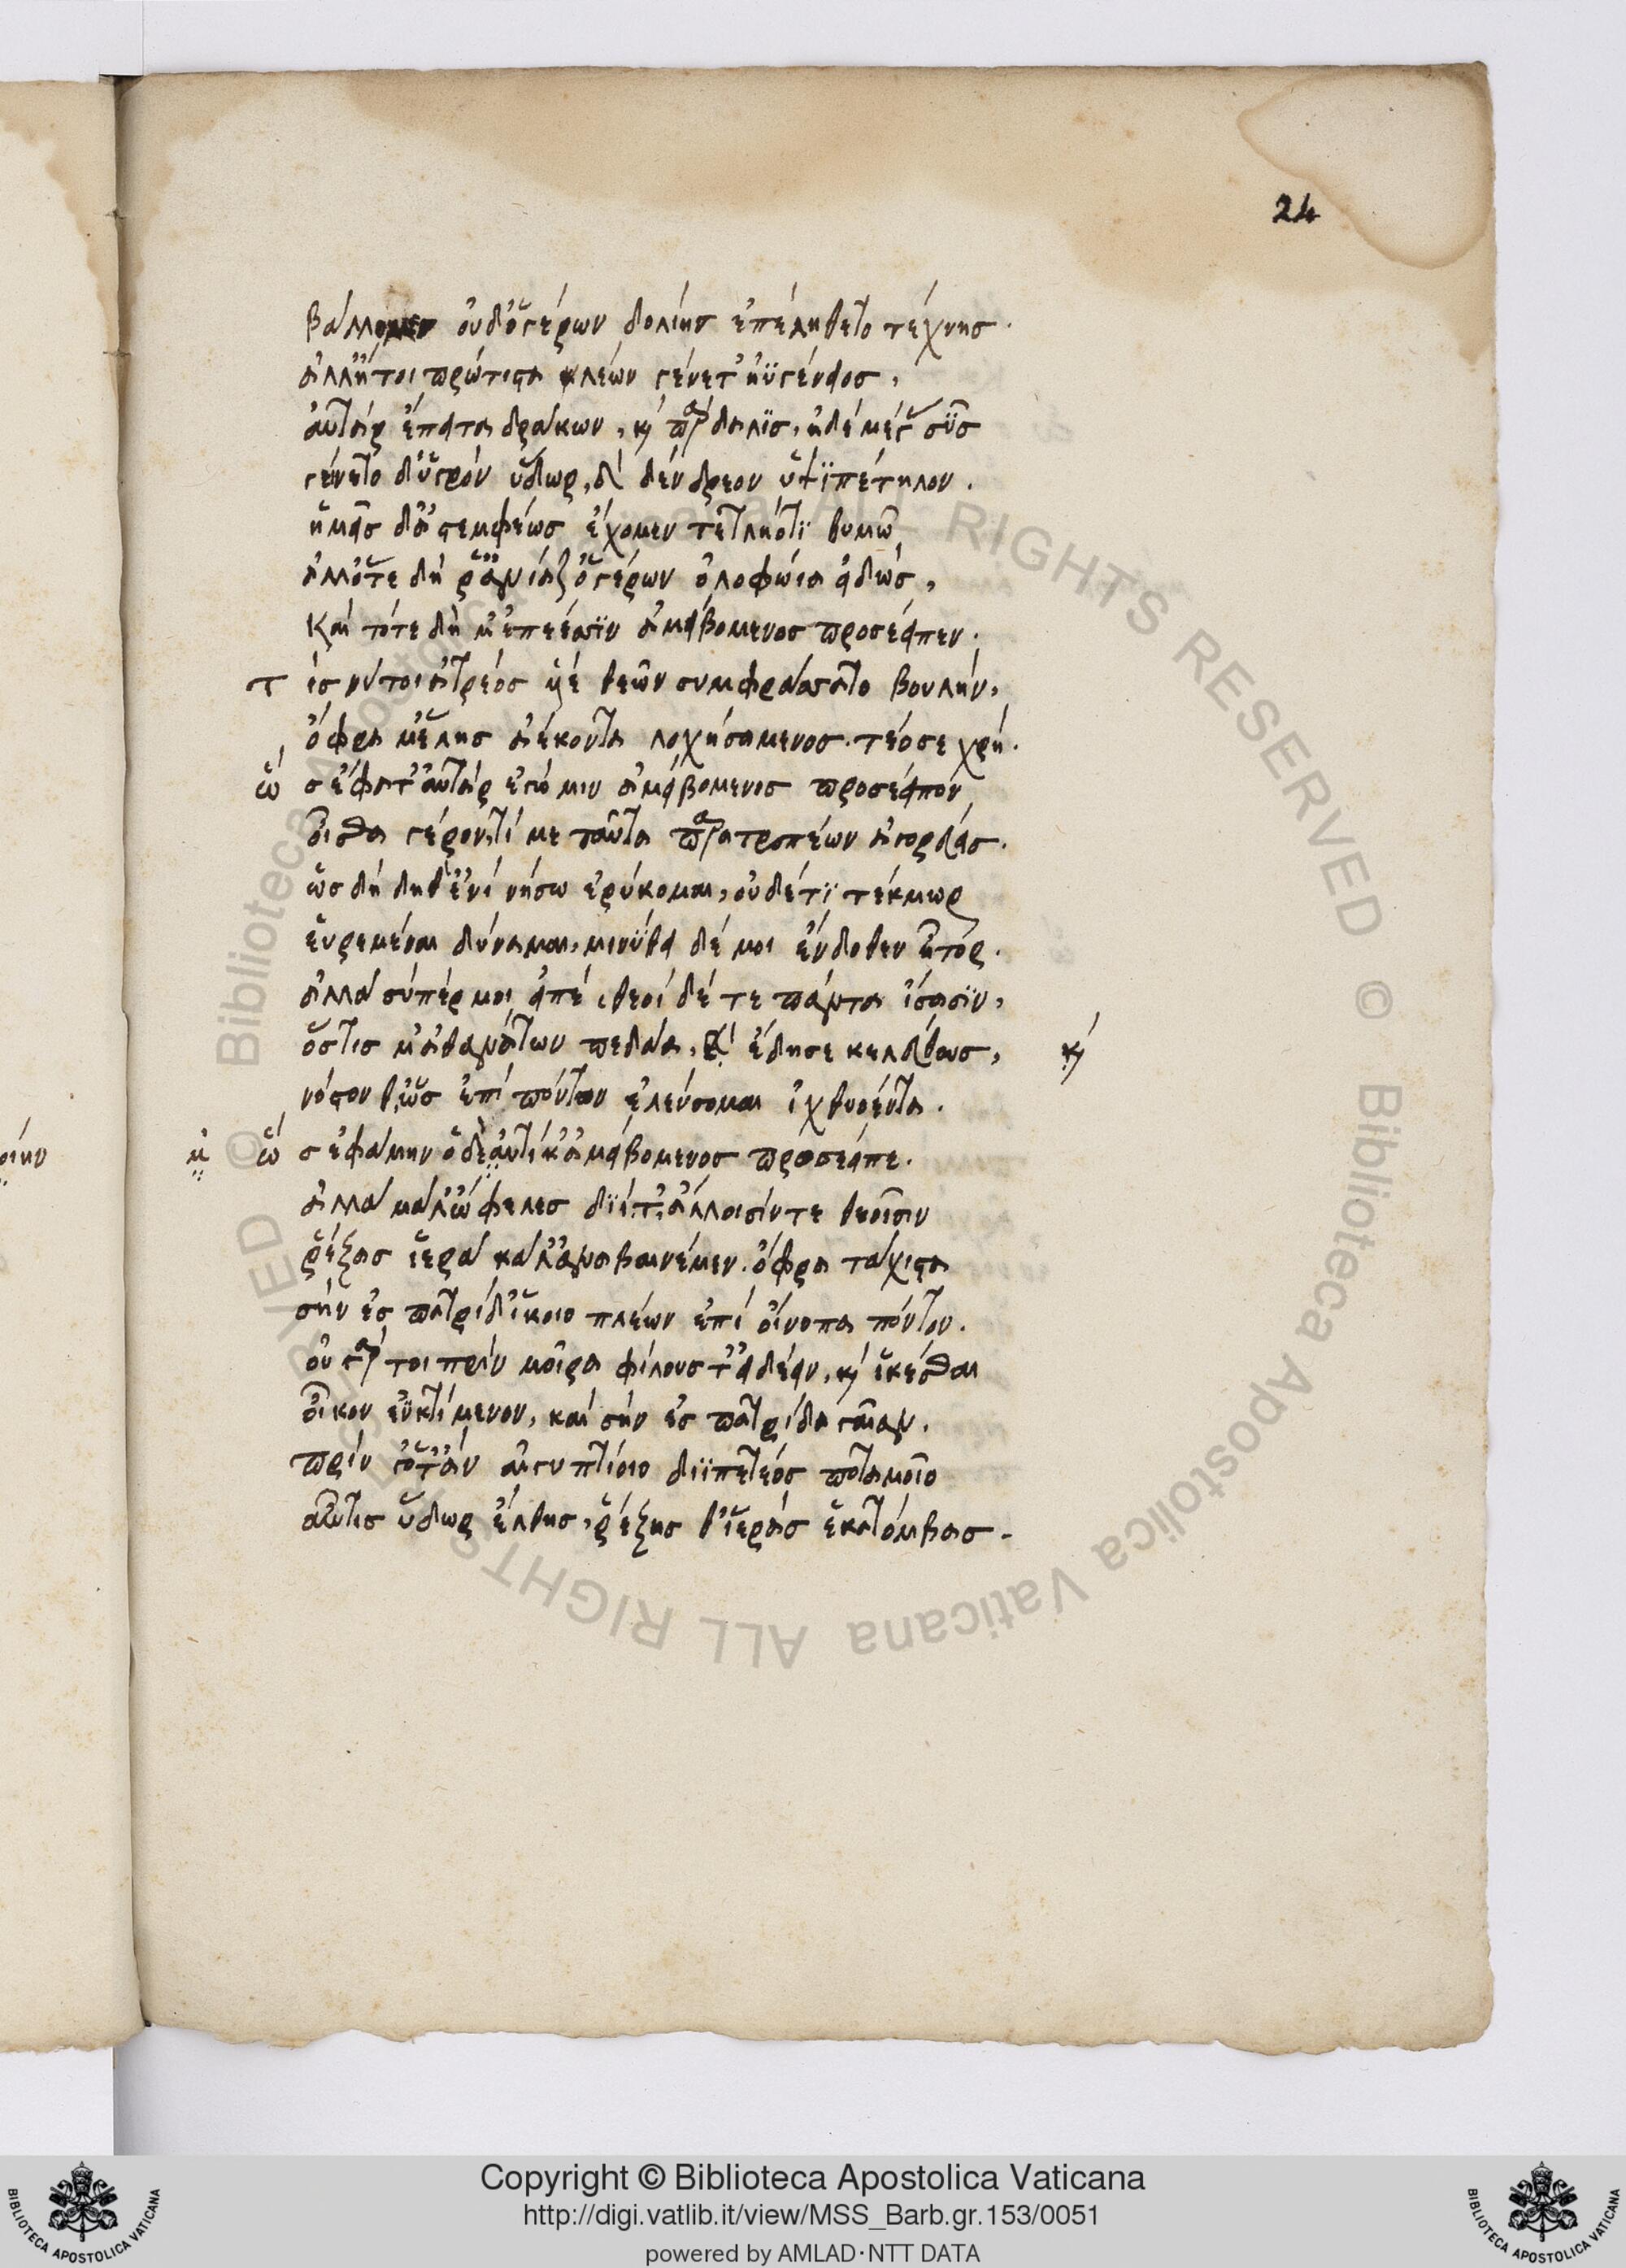 24
βάλλομεν οὐδ' ὁ γέρων δολίης ἐπελήθετο τέχνης.
ἀλλ' ἤτοι πρώτιστα λέων γένετ' ἠϋγένειος,
αὐτὰρ ἔπειτα δράκων, καὶ πάρδαλϊς, ἠδὲ μέγ̓ σῦς
γένετο δ' ὑγρὸν ὕδωρ, καὶ δένδρεον ὑψϊπέτηλον.
ἡμεῖς δ' ἀστεμφέως ἔχομεν τετληότϊ θυμῶ,
ἀλλ' ὅτε δή ῥ' ἀνίαζ' ὁ γέρων ὀλοφώια εἰδώς,
καὶ τότε δή μ' ἐπέεσσϊν ἀμειβόμενος προσέειπεν.
τίς νύ τοι ἀτρέος υἱέ θεῶν συμφράσσατο βουλήν,
ὄφρα μ' ἕλης ἀέκοντα λοχησάμενος. τέο σε χρή.
ὣς ἔφατ' αὐτὰρ ἐγώ μιν ἀμειβόμενος προσέειπον
οἶσθα γέρον, τί με ταῦτα παρατροπέων ἀγορεύεις.
ὡς δὴ δήθ' ἐνὶ νήσω ἐρύκομαι, οὐδέ τϊ τέκμωρ
εὑρέμεναι δύναμαι, μινύθει δέ μοι ἔνδοθεν ἦτορ.
ἀλλὰ σύ πέρ μοι εἰπέ, θεοὶ δέ τε πάντα ἴσασϊν,
ὅστις μ' ἀθανάτων πεδάα, καὶ ἔδησε κελεύθους, καὶ
νόστον θ', ὡς ἐπὶ πόντον ἐλεύσομαι ἰχθυόεντα.
μ' ὣς ἐφάμην ὁ δὲ αὐτίκ' ἀμειβόμενος προσέειπε.
ἀλλὰ μάλ' ὤφελες διΐ τ', ἄλλοισίν τε θεοῖσιν
ῥέξας ἱερὰ κάλ' ἀναβαινέμεν. ὄφρα τάχιστα
σὴν ἐς πατρίδ' ἵκοιο πλέων ἐπὶ οἴνοπα πόντον.
οὐ γάρ τοι πρὶν μοῖρα φίλους τ' ἰδέειν, καὶ ἱκέσθαι
οἶκον ἐϋκτίμενον, καὶ σὴν ἐς πατρίδα γαῖαν.
πρίν γ' ὅτ' ἂν αἰγυπτίοιο διϊπετέος ποταμοῖο
αὖτις ὕδωρ ἔλθης, ῥέξης θ' ἱερὰς ἑκατόμβας.
© Biblioteca Apostolica Vaticana ALL RIGHTS RESERVED
Copyright © Biblioteca Apostolica Vaticana
http://digi.vatlib.it/view/MSS_Barb.gr.153/0051
powered by AMLAD·NTT DATA
BIBLIOTECA APOSTOLICA VATICANA
BIBLIOTECA APOSTOLICA VATICANA